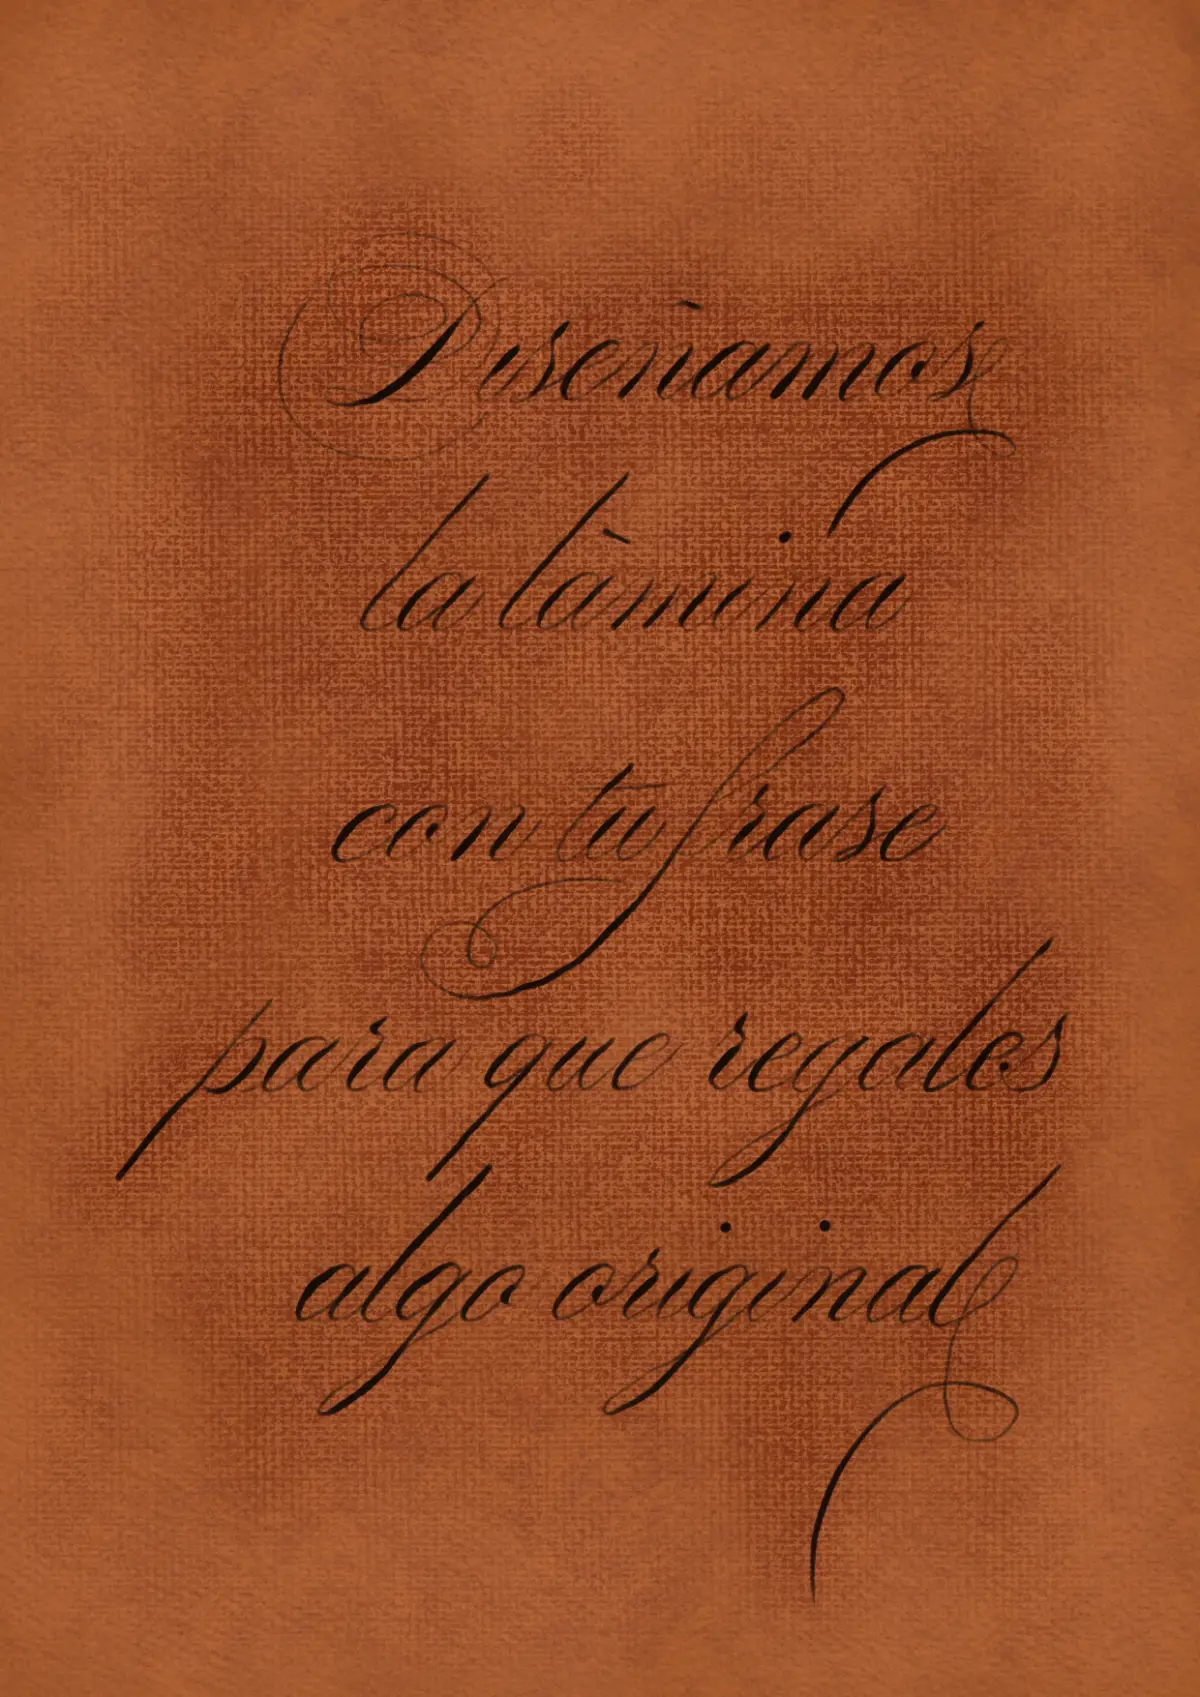 Diseñamos
la làmina
con tu frase
para que regales
algo original